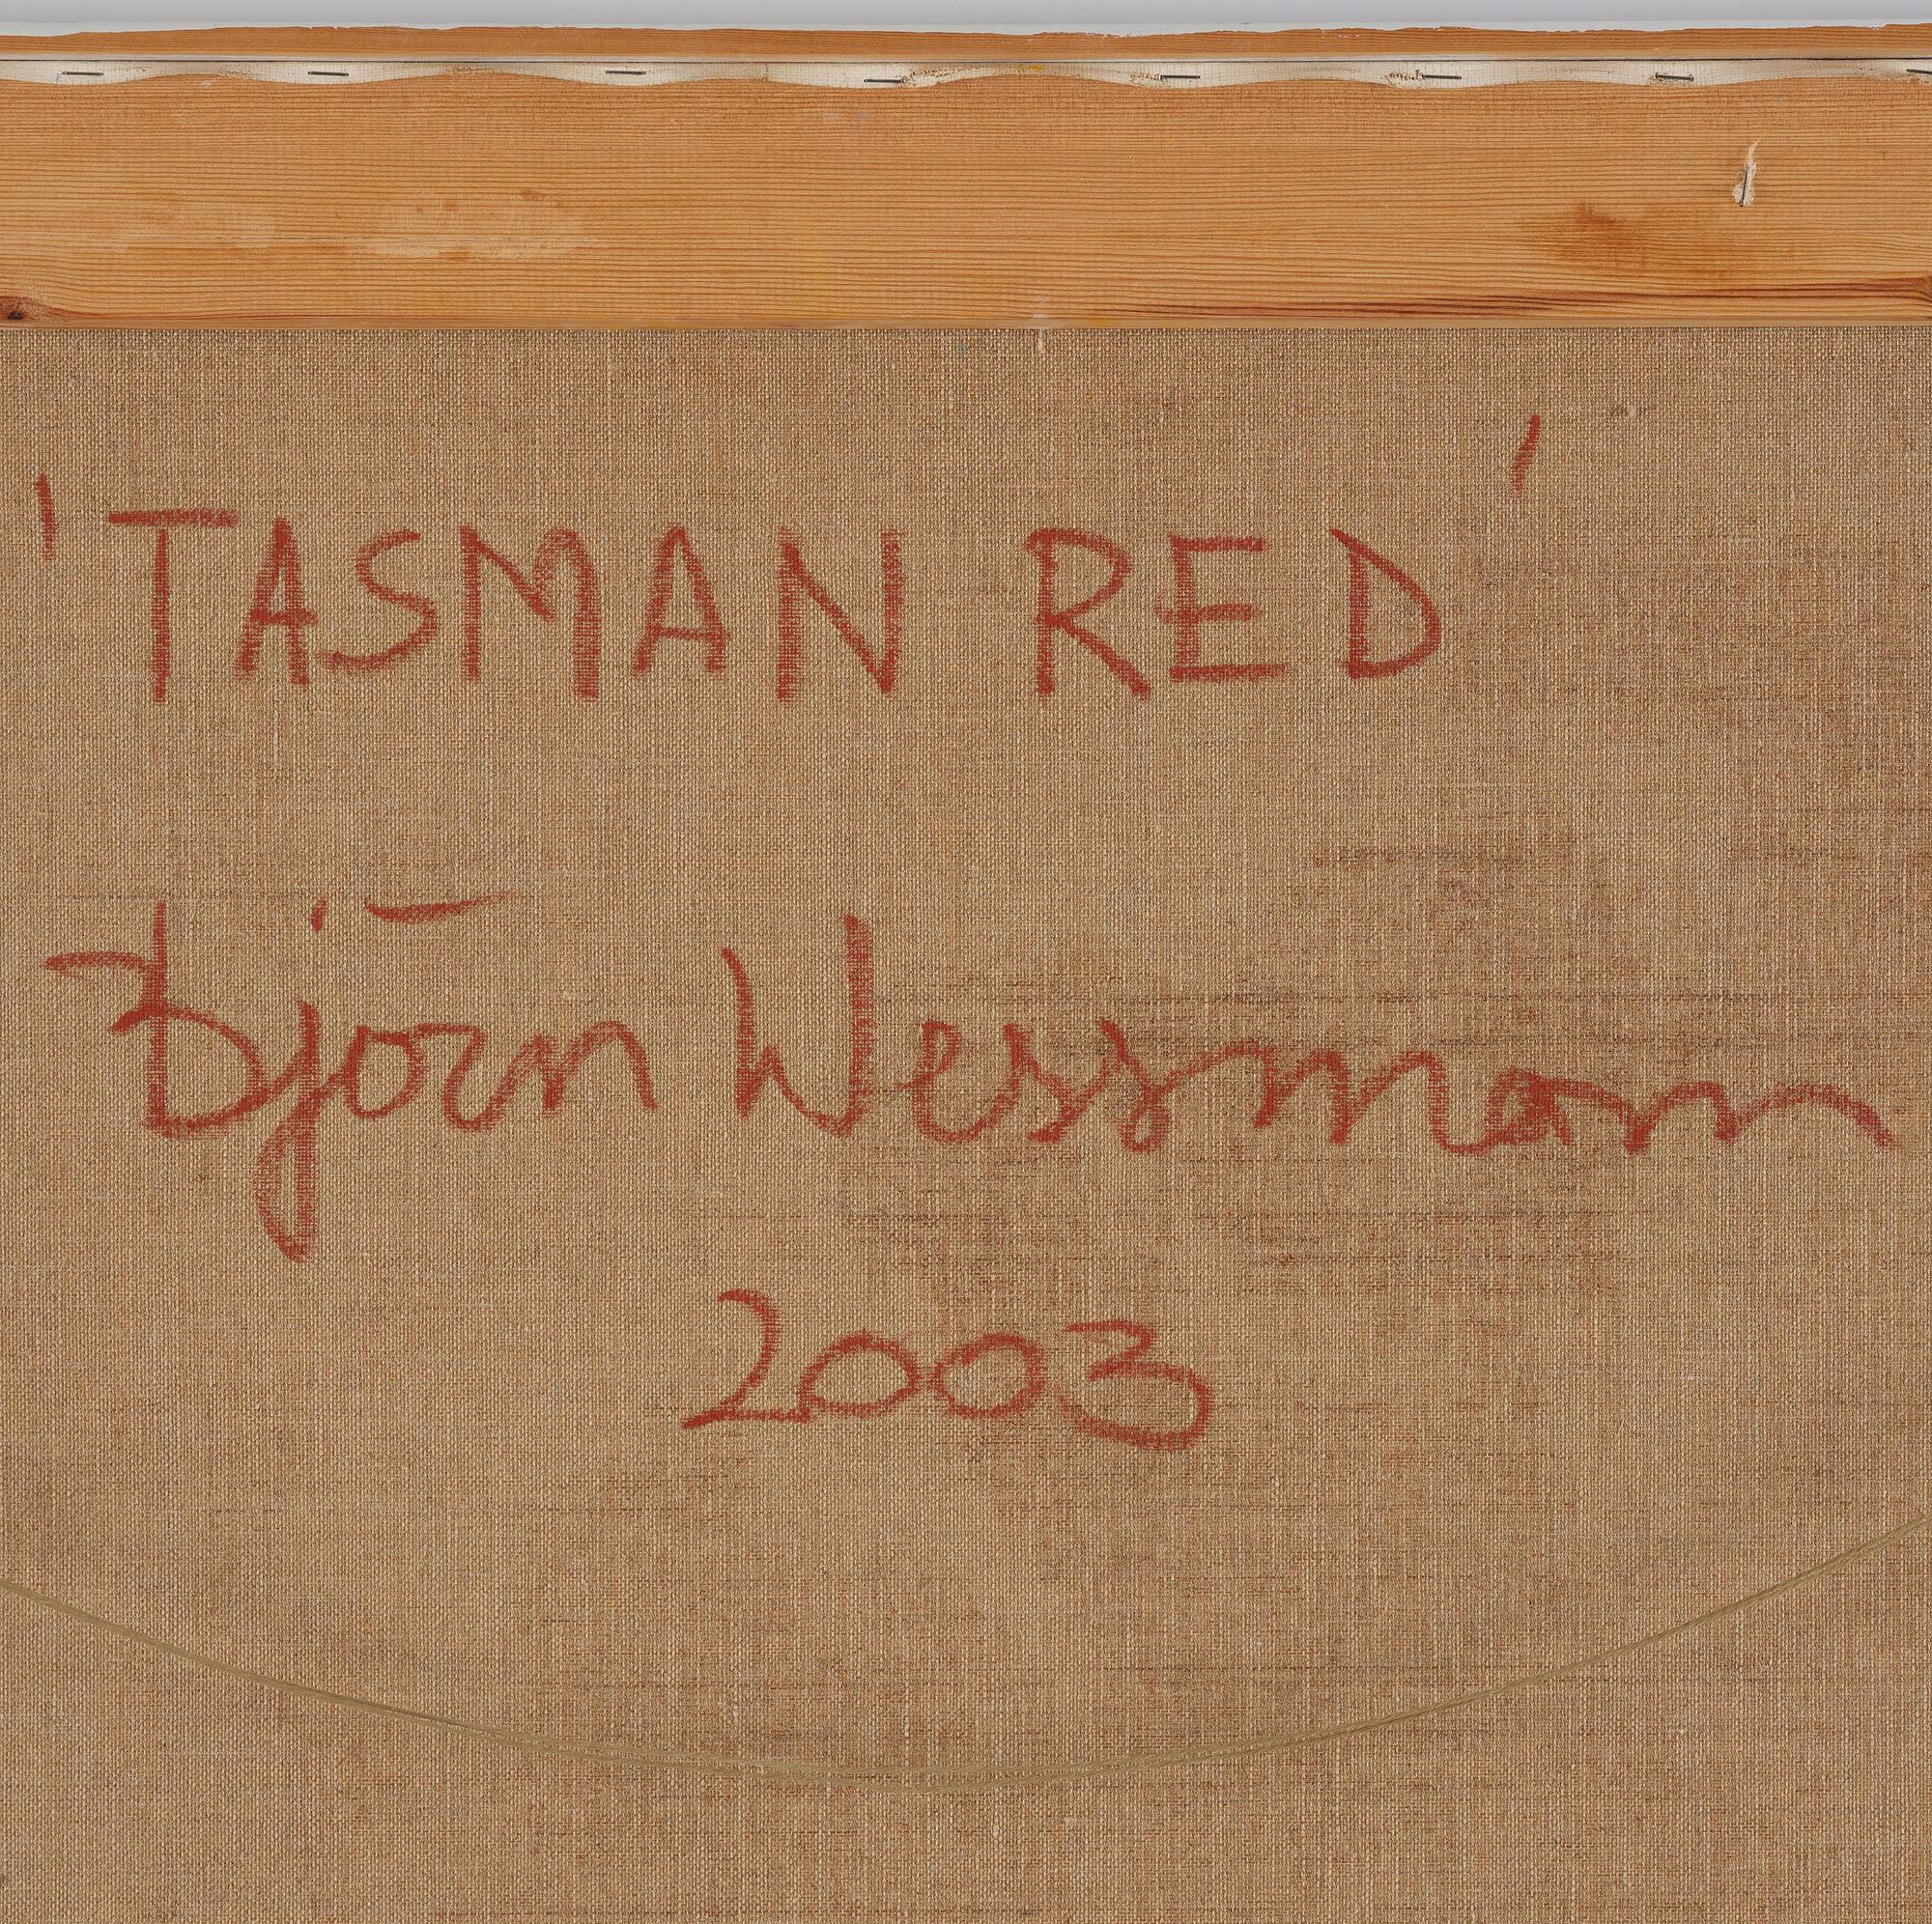 'TASMAN RED'
Björn Wessman
2003